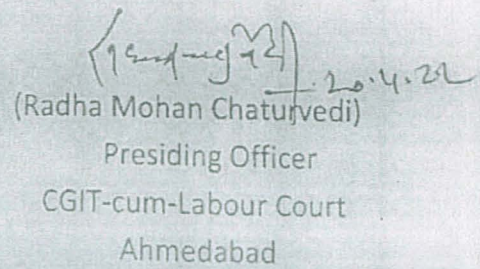 20.4.22
(Radha Mohan Chaturvedi)
Presiding Officer
CGIT-cum-Labour Court
Ahmedabad